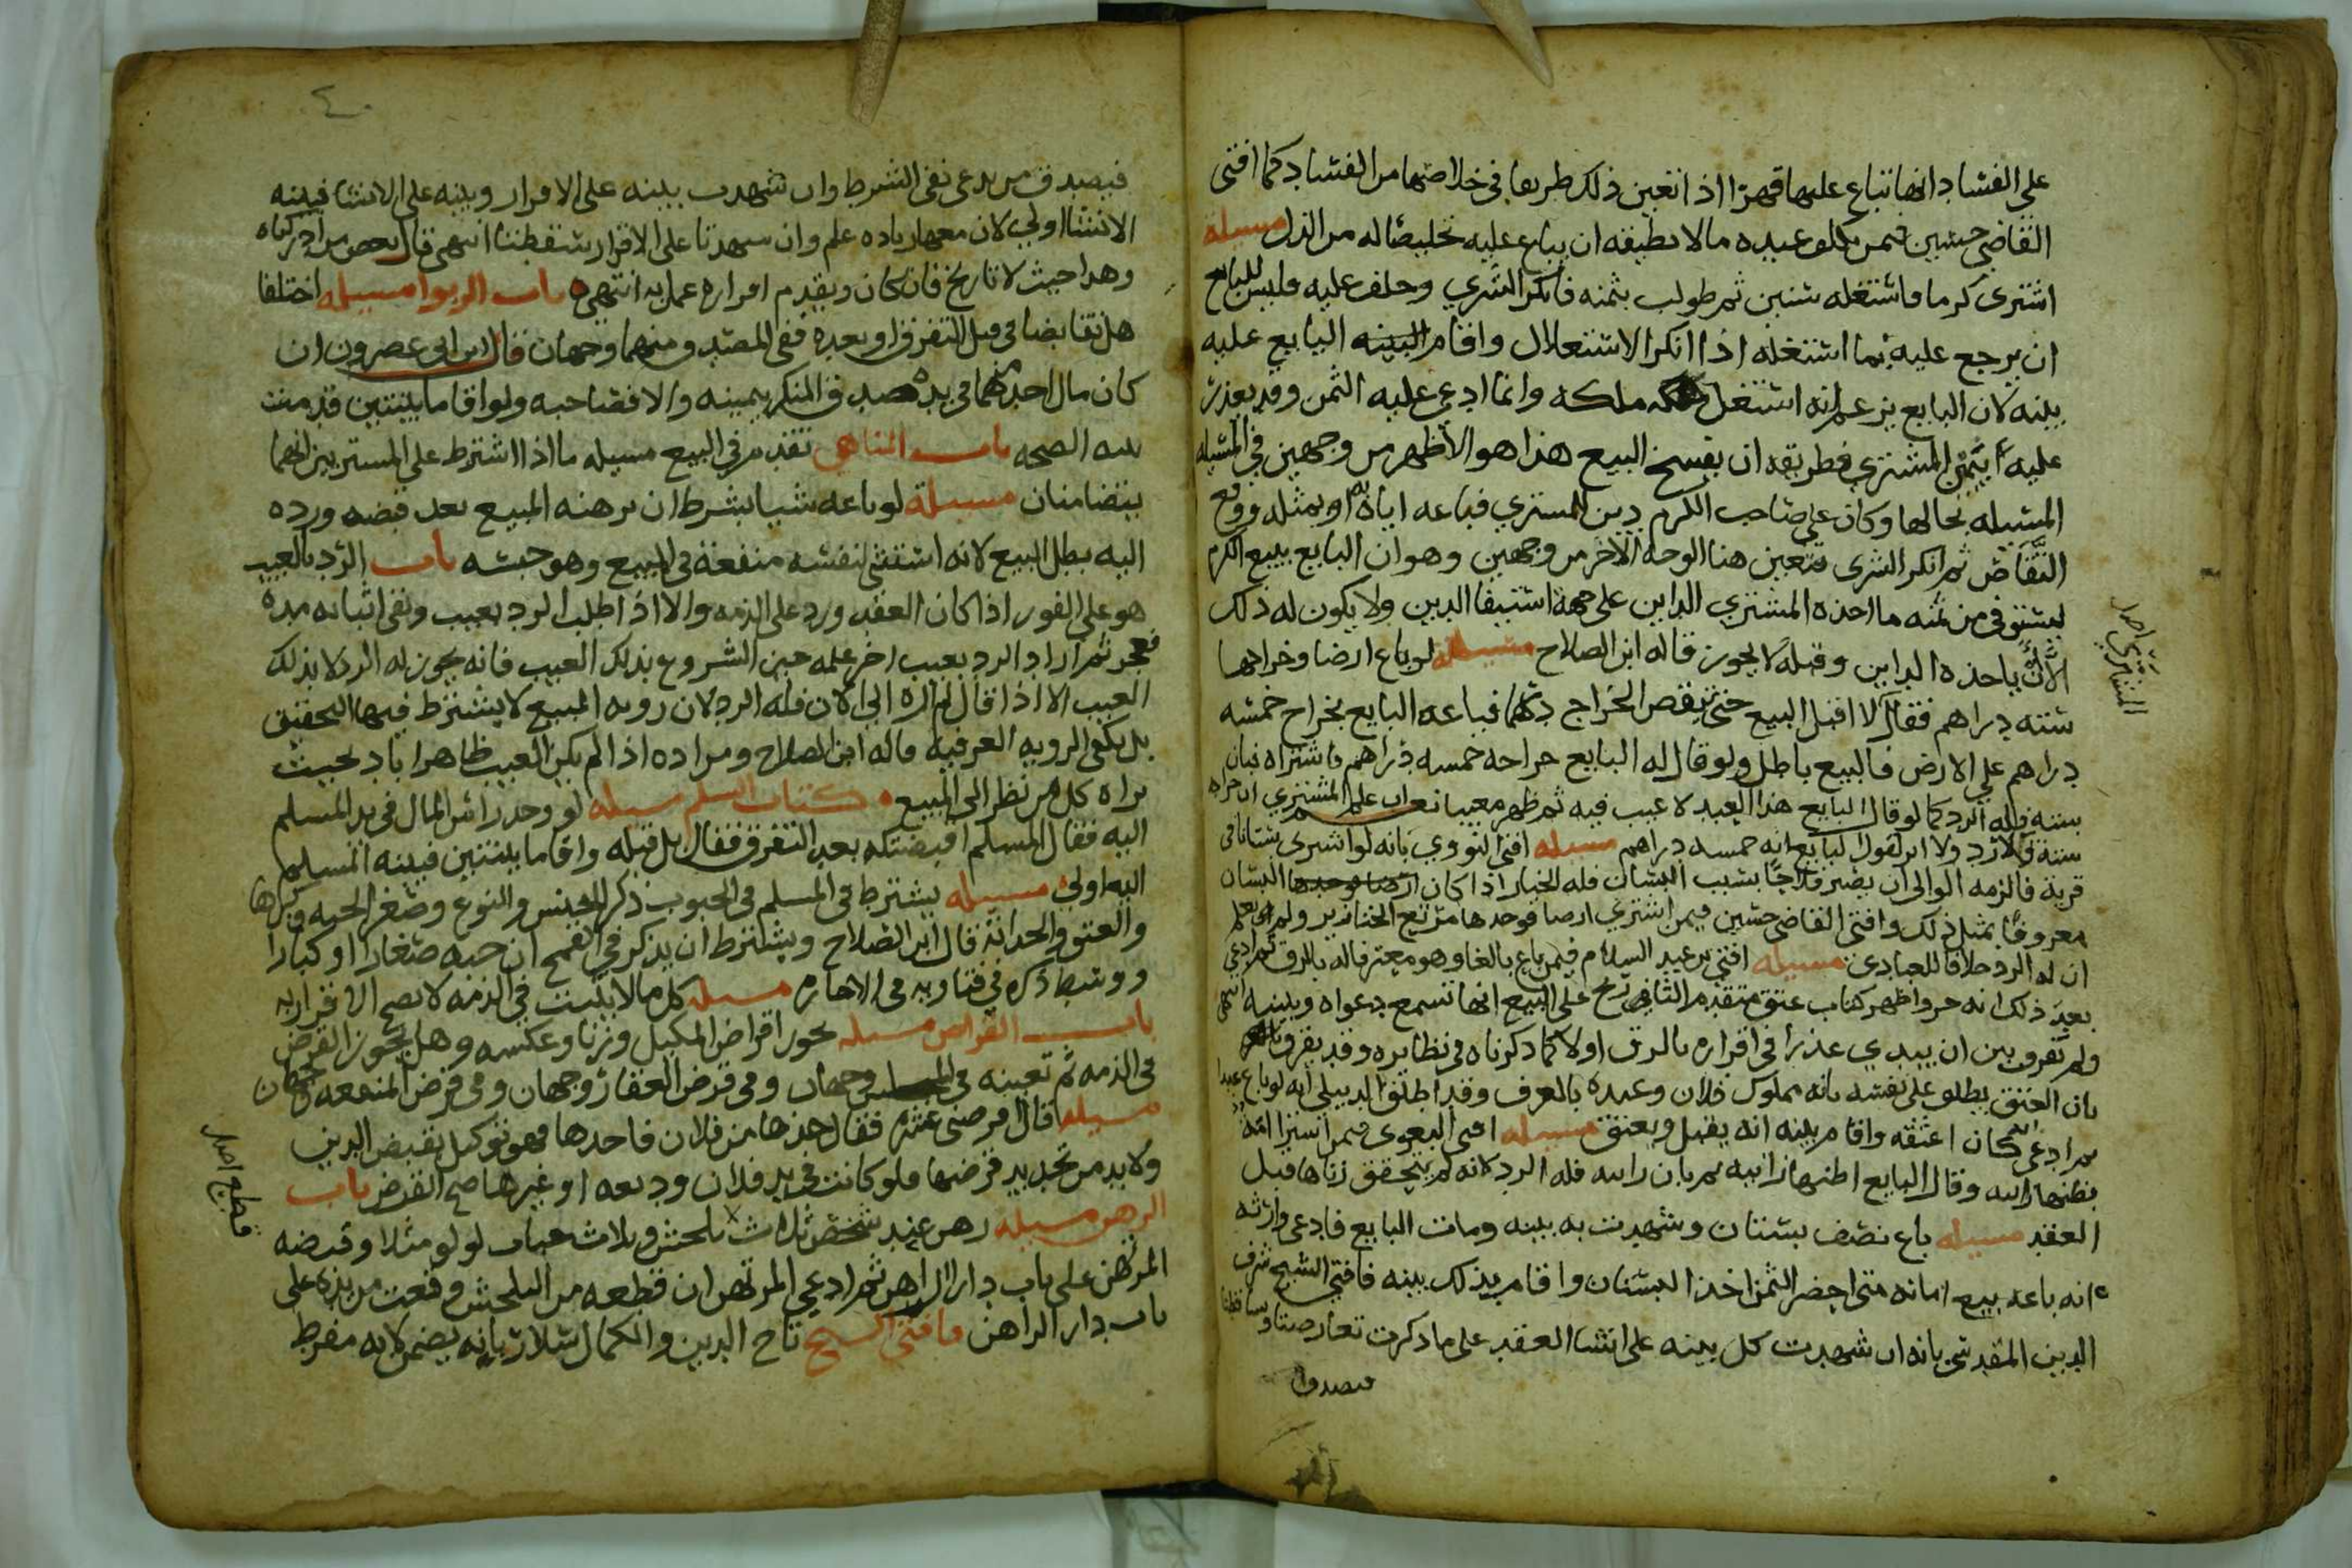 على الفساد انها تباع عليها قهرا اذا تعين ذلك طريقا في خلاصها من الفساد كما افتى
القاضي حسين فمن كلف عبده ما لا يطيقه ان يباع عليه تخليصا له من الذل مسيلة
اشترى كرما فاستغله سنين ثم طولب بثمنه فانكر الشري وحلف عليه فليس للبايع
ان يرجع عليه بما استغله اذا انكر الاستغلال واقام البينه البايع عليه
بينه لان البايع يزعم انه استغل ملكه وانما ادعى عليه الثمن وقد تعذر
عليه المشتري فطريقه ان يفسخ البيع هذا هو الاظهر من وجهين في المسيله
المسيله بحالها وكان على صاحب الكرم دين للمشتري فباعه اياه به او بمثله ووقع
التقاص ثم انكر الشرى فتعين هنا الوجه الاخر من وجهين وهو ان البايع يبيع الكرم
ليستوفي من ثمنه ما اخذه المشتري الداين على جهة استيفا الدين ولا يكون له ذلك
الا ان ياخذه الداين وقبله لا يجوز قاله ابن الصلاح مسيله لو باع ارضا وخراجها
سته دراهم فقال لا اقبل البيع حتى تنقص الخراج درهما فباعه البايع بخراج خمسه
دراهم على الارض فالبيع باطل ولو قال له البايع خراجه خمسه دراهم فاشتراه فبان
سته فله الرد كما لو قال البايع هذا العبد لا عيب فيه ثم ظهر معيبا نعم ان علم المشتري ان خراجه
سته فلا رد ولا اثر لقول البايع انه خمسه دراهم مسيله افتى النووي بانه لو اشترى بستانا في
قرية فالزمه الوالي ان يصير فلاحا بسبب البستان فله الخيار اذا كان البستان
معروفا بمثل ذلك وافتى القاضي حسين فيمن اشترى ارضا فوجدها مرتع الخنازير ولم يعلم
ان له الرد خلافا للعبادي مسيله افتى ابن عبد السلام فيمن باع بالغا وهو معترف له بالرق ثم ادعى
بعد ذلك انه حر واظهر كتاب عتق متقدم التاريخ على البيع انها تسمع دعواه وبينته انتهى
ولم يفرق بين ان يبدي عذرا في اقراره بالرق اولا كما ذكرناه في نظايره وقد يفرق
بان العتق يطلق على نفسه بانه مملوك فلان وعبده بالعرف وقد اطلق الدبيلي انه لو باع عبدا
ثم ادعى انه كان اعتقه واقام بينه انه يقبل ويعتق مسيله افتى البغوي فيمن اشترا امة
يظنها زانيه وقال البايع اظنها زانيه ثم بان زانيه فله الرد لانه لم يتحقق زناها قبل
العقد مسيله باع نصف بستان وشهدت به بينه ومات البايع فادعى وارثه
انه باعه بيع امانه متى احضر الثمن اخذ البستان واقام بذلك بينه فافتى الشيخ شرف
الدين المقدسي بانه ان شهدت كل بينه على انشا العقد على ما ذكرت تعارضتا وتساقطتا
فيصدق
المشتري اصل
فيصدق من يدعي نفي الشرط وان شهدت بينه على الاقرار وبينه على الانشا فبينه
الانشا اولى لان معها زياده علم وان شهدتا على الاقرار سقطتا انتهى قال بعض من ادركناه
وهذا حيث لا تاريخ فان كان وتقدم اقراره عمل به انتهى باب الربوا مسيله اختلفا
هل تقابضا في قبل التفرق او بعده ففي المصدق منهما وجهان قال ابن ابي عصرون ان
كان مال احدهما في يده صدق المنكر بيمينه والا فصاحبه ولو اقاما بينتين قدمت
بينه الصحه باب المناهي تقدم في البيع مسيله ما اذا اشترط على المشتريين انهما
يتضامنان مسيلة لو باعه شيا بشرط ان يرهنه المبيع بعد قبضه ورده
اليه بطل البيع لانه استثنى لنفسه منفعة في المبيع وهو حبسه باب الرد بالعيب
هو على الفور اذا كان العقد ورد على الذمه والا اذا طلب الرد بعيب ونفى اثباته مده
فعجز ثم اراد الرد بعيب اخر علمه حين الشروع بذلك العيب فانه يجوز له الرد لا بذلك
العيب الا اذا قال لم اره الى الان فله الرد لان رويه المبيع لا يشترط فيها التحقيق
بل يكفي الرويه العرفيه قاله ابن الصلاح ومراده اذا لم يكن العيب ظاهرا باد بحيث
يراه كل من نظر الى المبيع كتاب السلم مسيله لو وجد راس المال في يد المسلم
اليه فقال المسلم اقبضتكه بعد التفرق فقال بل قبله واقاما بينتين فبينه المسلم
اليه اولى مسيله يشترط في المسلم في الحبوب ذكر الجنس والنوع وصغر الحبه وكبرها
والعتق والحداثة قال ابن الصلاح ويشترط ان يذكر في القمح ان حبه صغارا او كبارا
ووسط ذكره في فتاويه في الاجاره مسيله كل ما لا يثبت في الذمه لا يصح الاقرار به
باب القراض مسيله يجوز اقراض المكيل وزنا وعكسه وهل يجوز القرض
في الذمه ثم تعيينه في المجلس وجهان وفي قرض العقار وجهان وفي قرض المنفعه وجهان
مسيله قال اقرضني عشره فقال خذها من فلان فاخذها فهو توكيل بقبض الدين
ولا بد من تجديد قرضها ولو كانت في يد فلان وديعه او غيرها صح القرض باب
الرهن مسيله رهن عند شخص ثلاث بلحش وثلاث حبات لولو مثلا وقبضه
المرتهن على باب دار الراهن ثم ادعى المرتهن ان قطعه من البلحش وقعت من يده على
باب دار الراهن فافتى الشيخ تاج الدين والكمال سلار بانه يضمن لانه مفرط